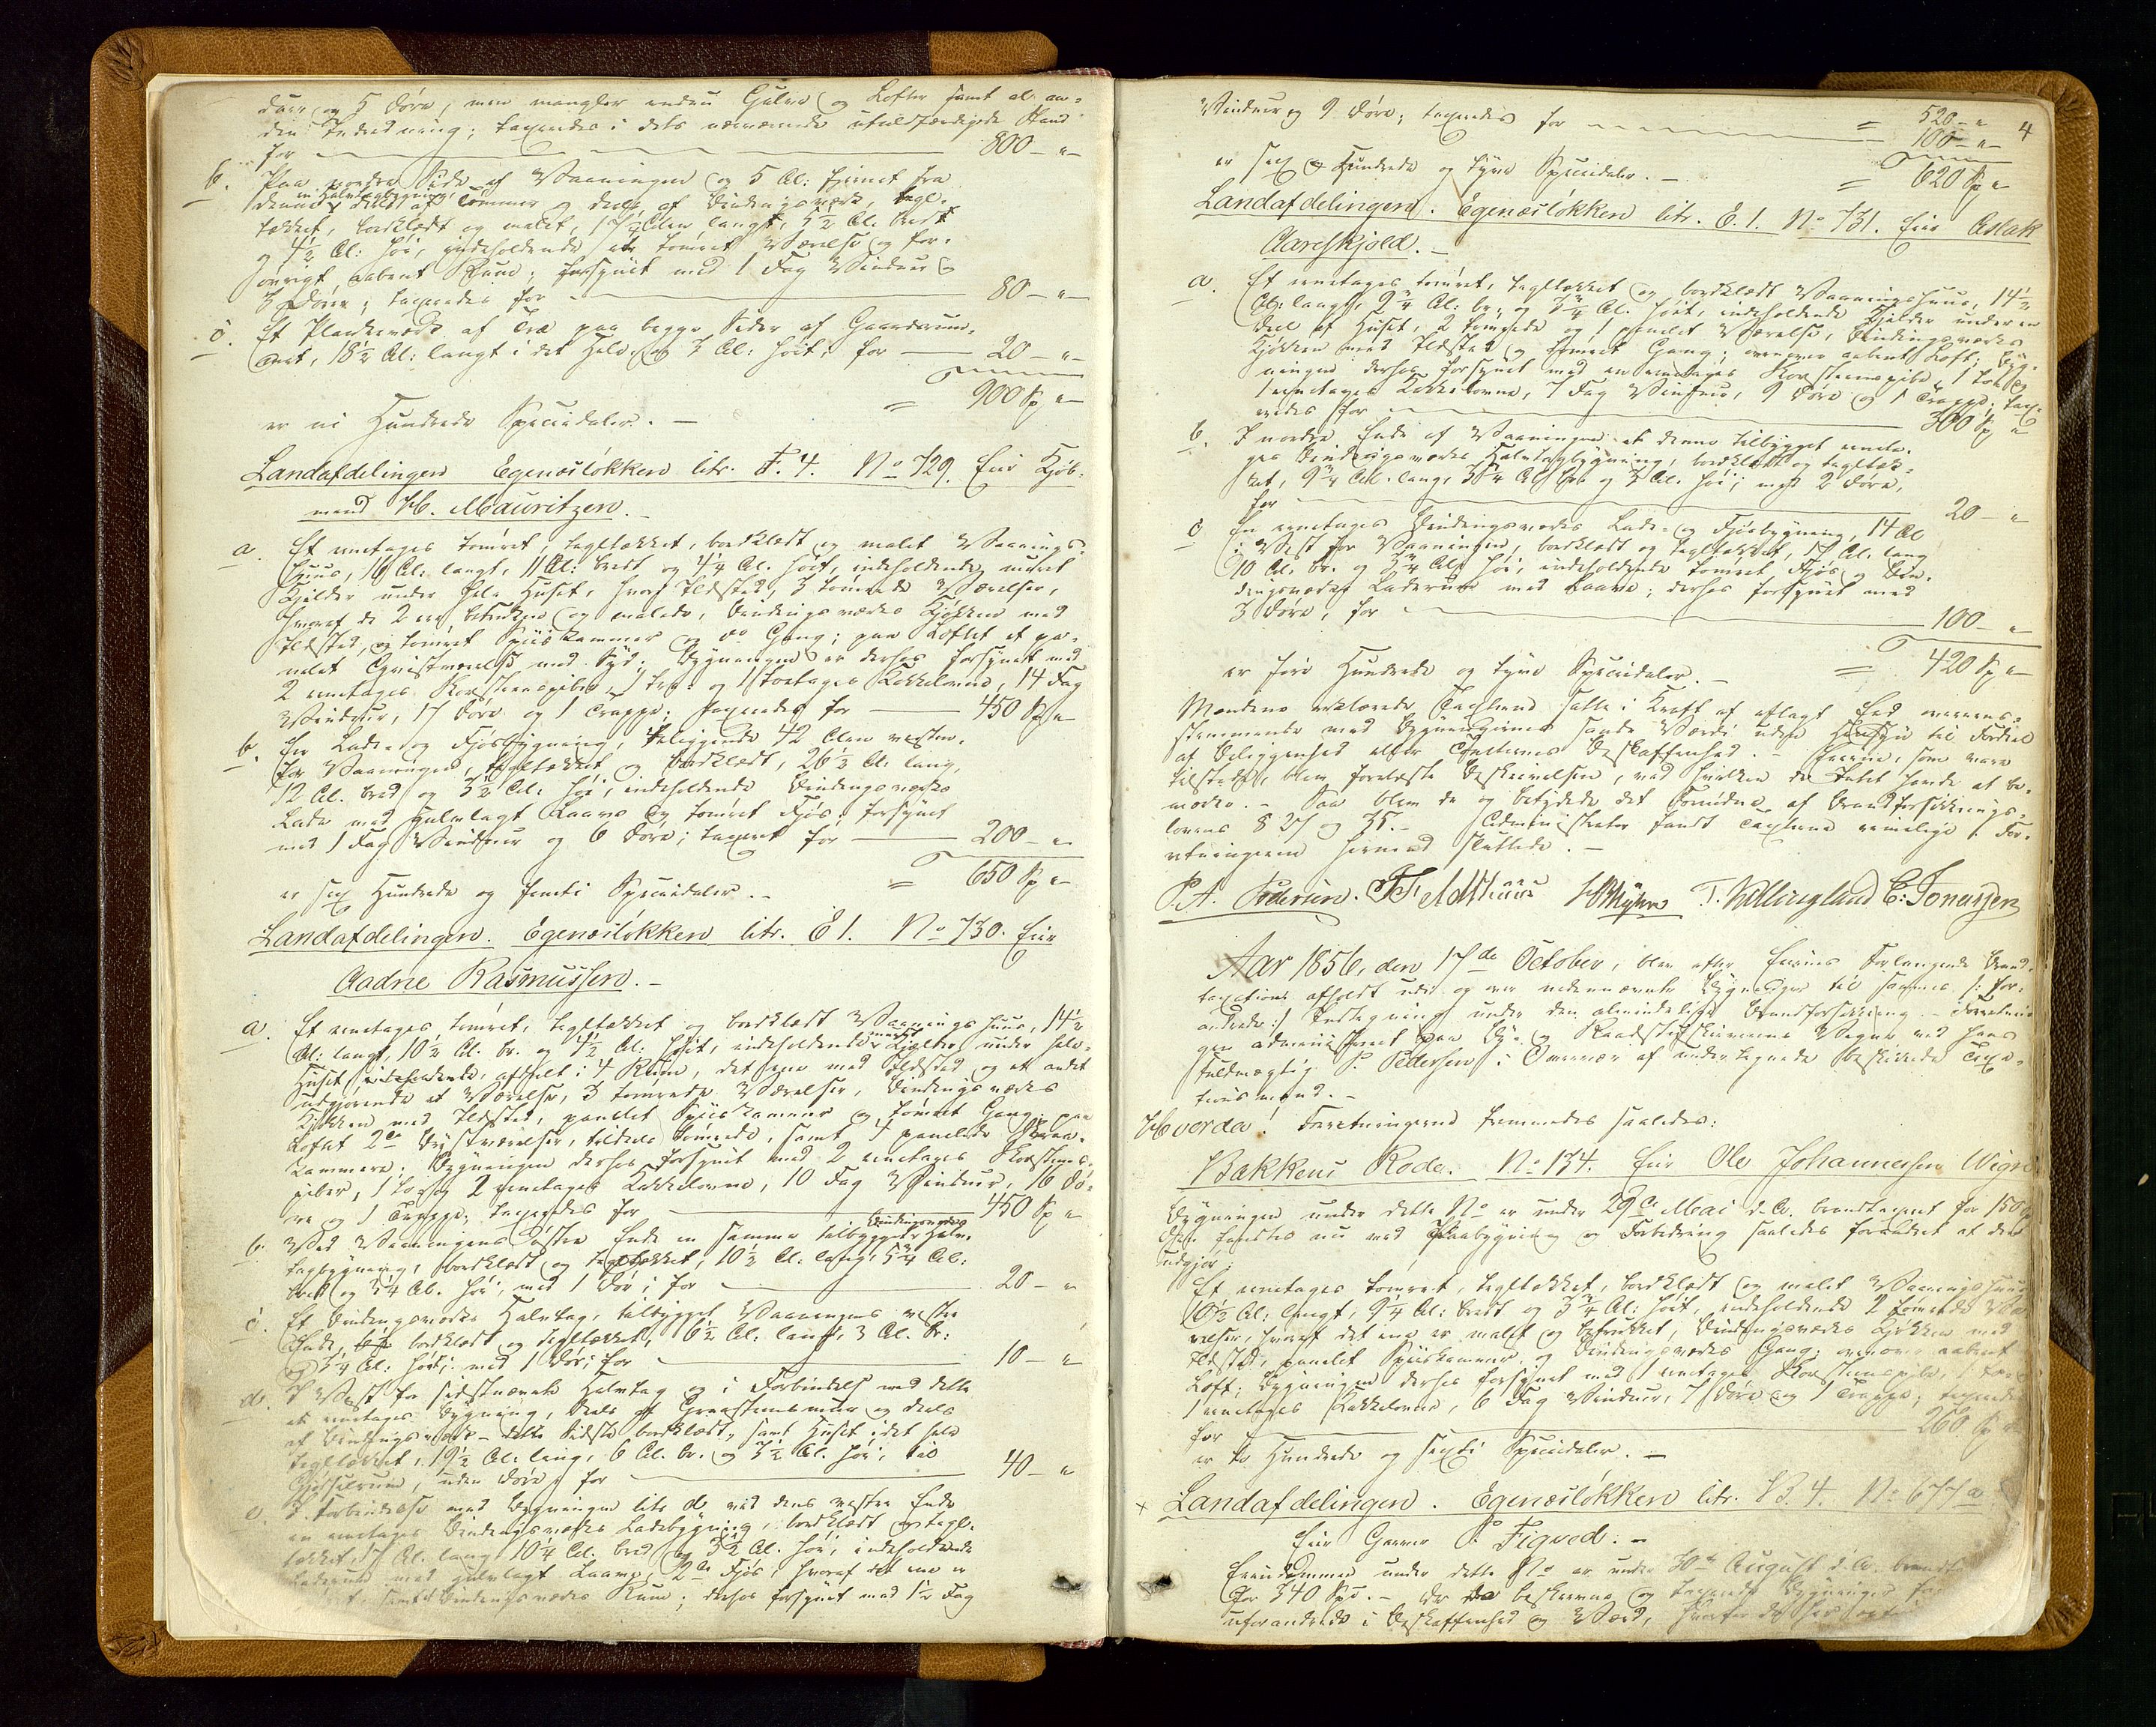 duer og 5 Døre, men mangler endnu Gulve og Lofter samt al an-
den Indredning; taxeredes i dets nærværende ufuldfærdigede Stand
for 800 - " -
b. Paa nordre Side af Vaaningen og 5 Al: fjernet fra
denne en Halvtagbygning, deels af Tømmer og deels af Bindingsværk, tegl-
tækket, bordklædt og malet, Alen langt, 5½ Al. bredt
og 4½ Al: høi, indeholdende et tømret Værelse og for-
øvrigt aabent Rum; forsynet med 1 Fag Vinduer og
3 Døre; taxeredes for 80 - " -
c. Et Plankeværk af Træ paa begge Sider af Gaardsrum-
met, 18½ Al: langt i det Hele og 3 Al: høit, for 20 - " -
= 900 Sp "
er ni Hundrede Speciedaler. -
Landafdelingen Egenæsløkken litr. F. 4. No 729. Eier Kjøb-
mand H. Mauritzen. -
a. Et eenetages tømret, tegltækket, bordklædt og malet Vaanings-
huus, 16 Al: langt, 11 Al: bredt og 4¼ Al. høit, indeholdende muret
Kjelder under hele Huset, hvori Ildsted, 3 tømrede Værelser,
hvoraf de 2 ere betrukne og malede, Bindingsværks Kjøkken med
Ildsted, og tømret Spiiskammer og do Gang; paa Loftet et pa-
nelet Qvistværelse mod Syd; Bygningen er derhos forsynet med
2 eenetages Skorsteenspiber, 1 tre- og 1 toetages Kakkelovne, 14 Fag
Vinduer, 17 Døre og 1 Trappe; taxeredes for 450 Sp "
b. En Lade- og Fjøsbygning, beliggende 42 Alen vesten-
for Vaaningen, tegltækket og bordklædt, 26½ Al. lang,
12 Al. bred og 3½ Al: høi, indeholdende Bindingsværks
Lade med Halvlagt Laave og tømret Fjøs, forsynet
med 1 Fag Vinduer og 6 Døre; taxeret for 200 - " -
= 650 Sp "
er sex Hundrede og femti Speciedaler. -
Landafdelingen. Egenæsløkken litr. E 1. No 730. Eier
Aadne Rasmussen. -
a. Et eenetages tømret, tegltækket og bordklædt Vaaningshuus, 14½
Al: langt, 10½ Al. br. og 4½ Al: høit, indeholdende muret Kjelder under hele
Huset, afdelt i 4 Rum, det ene med Ildsted og et andet
udgjørende et Værelse, 3 tømrede Værelser, Bindingsværks
Kjøkken med Ildsted, panelet Spiiskammer og tømret Gang; paa
Loftet 2de Qvistværelser, tildeels tømrede, samt 4 panelede Skraa-
kammere; Bygningen derhos forsynet med 2 eenetages Skorsteens-
piber, 1 to- og 2 eenetages Kakkelovne, 10 Fag Vinduer, 16 Dø-
re og 1 Trappe, taxeredes for 450 Sp "
b. Ved Vaaningens østre Ende en samme tilbygget Bindingsværks Halv-
tagbygning, bordklædt og tegltækket, 10½ Al. lang, 5¾ Al:
bred og 3¼ Al. høi, med 1 Dør; for 20 - "
c. Et Bindingsværks Halvtag, tilbygget Vaaningens vestre
Ende, bordklædt og tegltækket, 6½ Al. langt, 3 Al. br:
og 3¼ Al. høit; med 1 Dør; for 10 - "
d. I Vest for sidstnævnte Halvtag og i Forbindelse med dette
et eenetages Bygning, deels af Graasteensmuur og deels
af Bindingsværk - dette sidste bordklædt, samt Huset i det hele
tegltækket, 19½ Al. lang, 6 Al. br. og 3½ Al. høi, til
Gjødselrum, uden Døre, for 40 - "
e. I Forbindelse med Bygningen litr d ved dens vestre Ende
en eenetages Bindingsværks Ladebygning, bordklædt og tegl-
tækket, 17 Al. lang, 10¼ Al. bred og 3½ Al. høi, indeholdende
Laderum med halvlagt Laave, 2de Fjøs, hvoraf det ene er
samt Bindingsværks Rum; derhos forsynet med 1½ Fag
4
Vinduer og 9 Døre; taxeredes for = 520 - "
100 - " -
= 620 Sp "
er sex Hundrede og tyve Speciedaler. -
Landafdelingen. Egenæsløkken litr. E. 1. No 731. Eier Aslak
Aareskjold. -
a. Et eenetages tømret, tegltækket og bordklædt Vaaningshuus, 14½
Al: langt, 9¾ Al: br. og 3¾ Al. høit, indeholdende Kjelder under en
Deel af Huset, 2 tømrede og 1 panelet Værelse, Bindingsværks
Kjøkken med Ildsted og tømret Gang; ovenover aabent Loft; Byg-
ningen derhos forsynet med en eenetages Skorsteenspibe, 1 to- og
1 eenetages Kakkelovne, 7 Fag Vinduer, 9 Døre og 1 Trappe; taxe-
redes for 300 Sp "
b. I nordre Ende af Vaaningen et denne tilbygget eeneta-
ges Bindingsværks Halvtagbygning, bordklædt og tegltæk-
ket, 9¾ Al. lang, 3¾ Al. br. og 3 Al. høi; med 2 Døre,
for 20 - "
c En eenetages Bindingsværks Lade- og Fjøsbygning, 14 Al
i Vest for Vaaningen, bordklædt og tegltækket, 17 Al. lang
10 Al. br. og 3¾ Al. høi, indeholdende tømret Fjøs og Bin-
dingsværks Laderum med Laave; derhos forsynet med
3 Døre, for 100 - "
= 420 Sp "
er fire Hundrede og tyve Speciedaler. -
Mændene erklærede Taxterne satte i Kraft af aflagt Eed overeens-
stemmende med Bygningernes sande Værdi uden Hensyn til Fordeel
af Beliggenhed eller Tomternes Beskaffenhed. - Eierne, som vare
tilstede, blev forelæste Beskrivelsen, ved hvilken de Intet havde at be-
mærke. - Saa blev de og betydede det Fornødne af Brandforsikrings-
lovens § 27 og 35. - Administrator fandt Taxterne rimelige. For-
retningerne hermed sluttede. -
P. A. Pedersen. T. Vølleiegland E: Jonassen
Aar 1856, den 17de October, blev efter Eiernes Forlangende Brand-
taxation afholdt udi og over nedennævnte Bygninger til sammes /: for-
andrede :/ Indtegning under den almindelige Brandforsikring. - Forretnin-
gen administreret paa By- og Raadstueskriverens Vegne ved hans
Fuldmægtig P. Pedersen i Overvær af undertegnede beskikkede Taxa-
tionsmænd. -
Hvorda! Forretningerne fremmedes saaledes:
Bakkens Rode. No 134. Eier Ole Johannessen
Bygningen under dette No er under 29de Mai d. A. brandtaxeret for 150
Den fandtes nu ved Paabygning og Forbedring saaledes forandret at den
udgjør:
Et eenetages tømret, tegltækket, bordklædt og malet Vaaningshuus
10½ Al: langt, 9¼ Al: bredt og 3¾ Al: høit, indeholdende 2 tømrede Væ-
relser, hvoraf det ene er malet og betrukket, Bindingsværks Kjøkken med
Ildsted, panelet Spiiskammer og Bindingsværks Gang; ovenover aabent
Loft; Bygningen derhos forsynet med 1 eenetages Skorsteenspibe,
1 eenetages Kakkelovne, 6 Fag Vinduer, 7 Døre og 1 Trappe; taxeredes
for 260 Sp
er to Hundrede og sexti Speciedaler. -
× Landafdelingen. Egenæsløkken litr. B. 4. No 677a
Eier Garver P. Figved. -
Eiendommen under dette No er under 30te August d. A. brandt
for 340 Spd. - De da beskrevne og taxerede Bygninger
uforandrede i Beskaffenhed og Værd, hvorfor de her